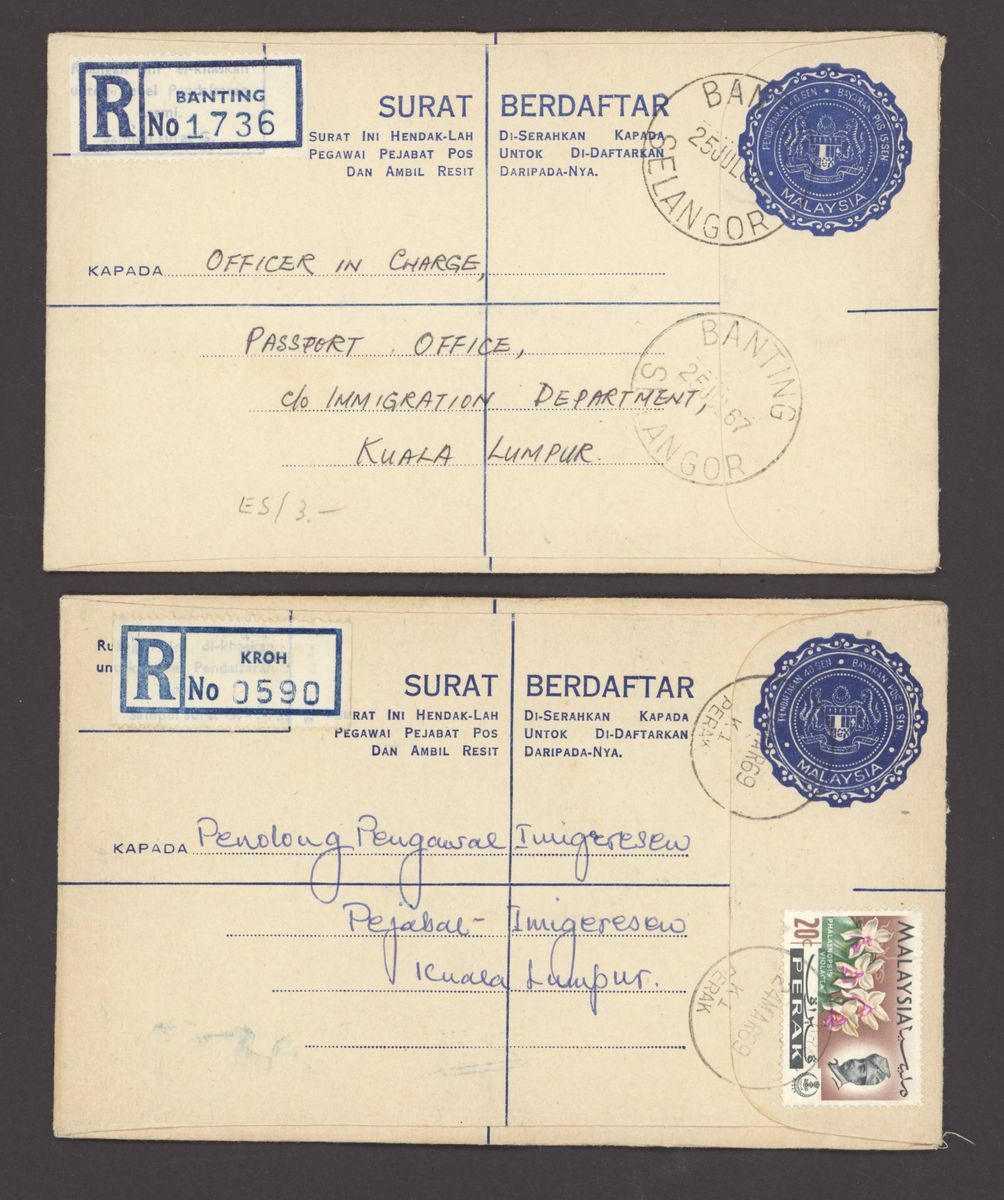 R
BANTING
No 1736
SURAT BERDAFTAR
SURAT INI HENDAK-LAH DI-SERAHKAN KAPADA
PEGAWAI PEJABAT POS UNTOK DI-DAFTARKAN
DAN AMBIL RESIT DARIPADA-NYA.
PENDAFTARAN 40 SEN • BAYARAN POS 15 SEN
MALAYSIA
SELANGOR
KAPADA OFFICER IN CHARGE,
PASSPORT OFFICE,
c/o IMMIGRATION DEPARTMENT,
KUALA LUMPUR.
BANTING
67
ES/3.-
R
KROH
No 0590
di-khaskan
Pendaftaran
SURAT BERDAFTAR
SURAT INI HENDAK-LAH DI-SERAHKAN KAPADA
PEGAWAI PEJABAT POS UNTOK DI-DAFTARKAN
DAN AMBIL RESIT DARIPADA-NYA.
PENDAFTARAN 40 SEN • BAYARAN POS 15 SEN
MALAYSIA
PERAK
KAPADA Penolong Pengawal Imigeresen
Pejabat Imigeresen
Kuala Lumpur.
24MAR69
PERAK
MALAYSIA
20c
PHALAENOPSIS VIOLACEA
PERAK